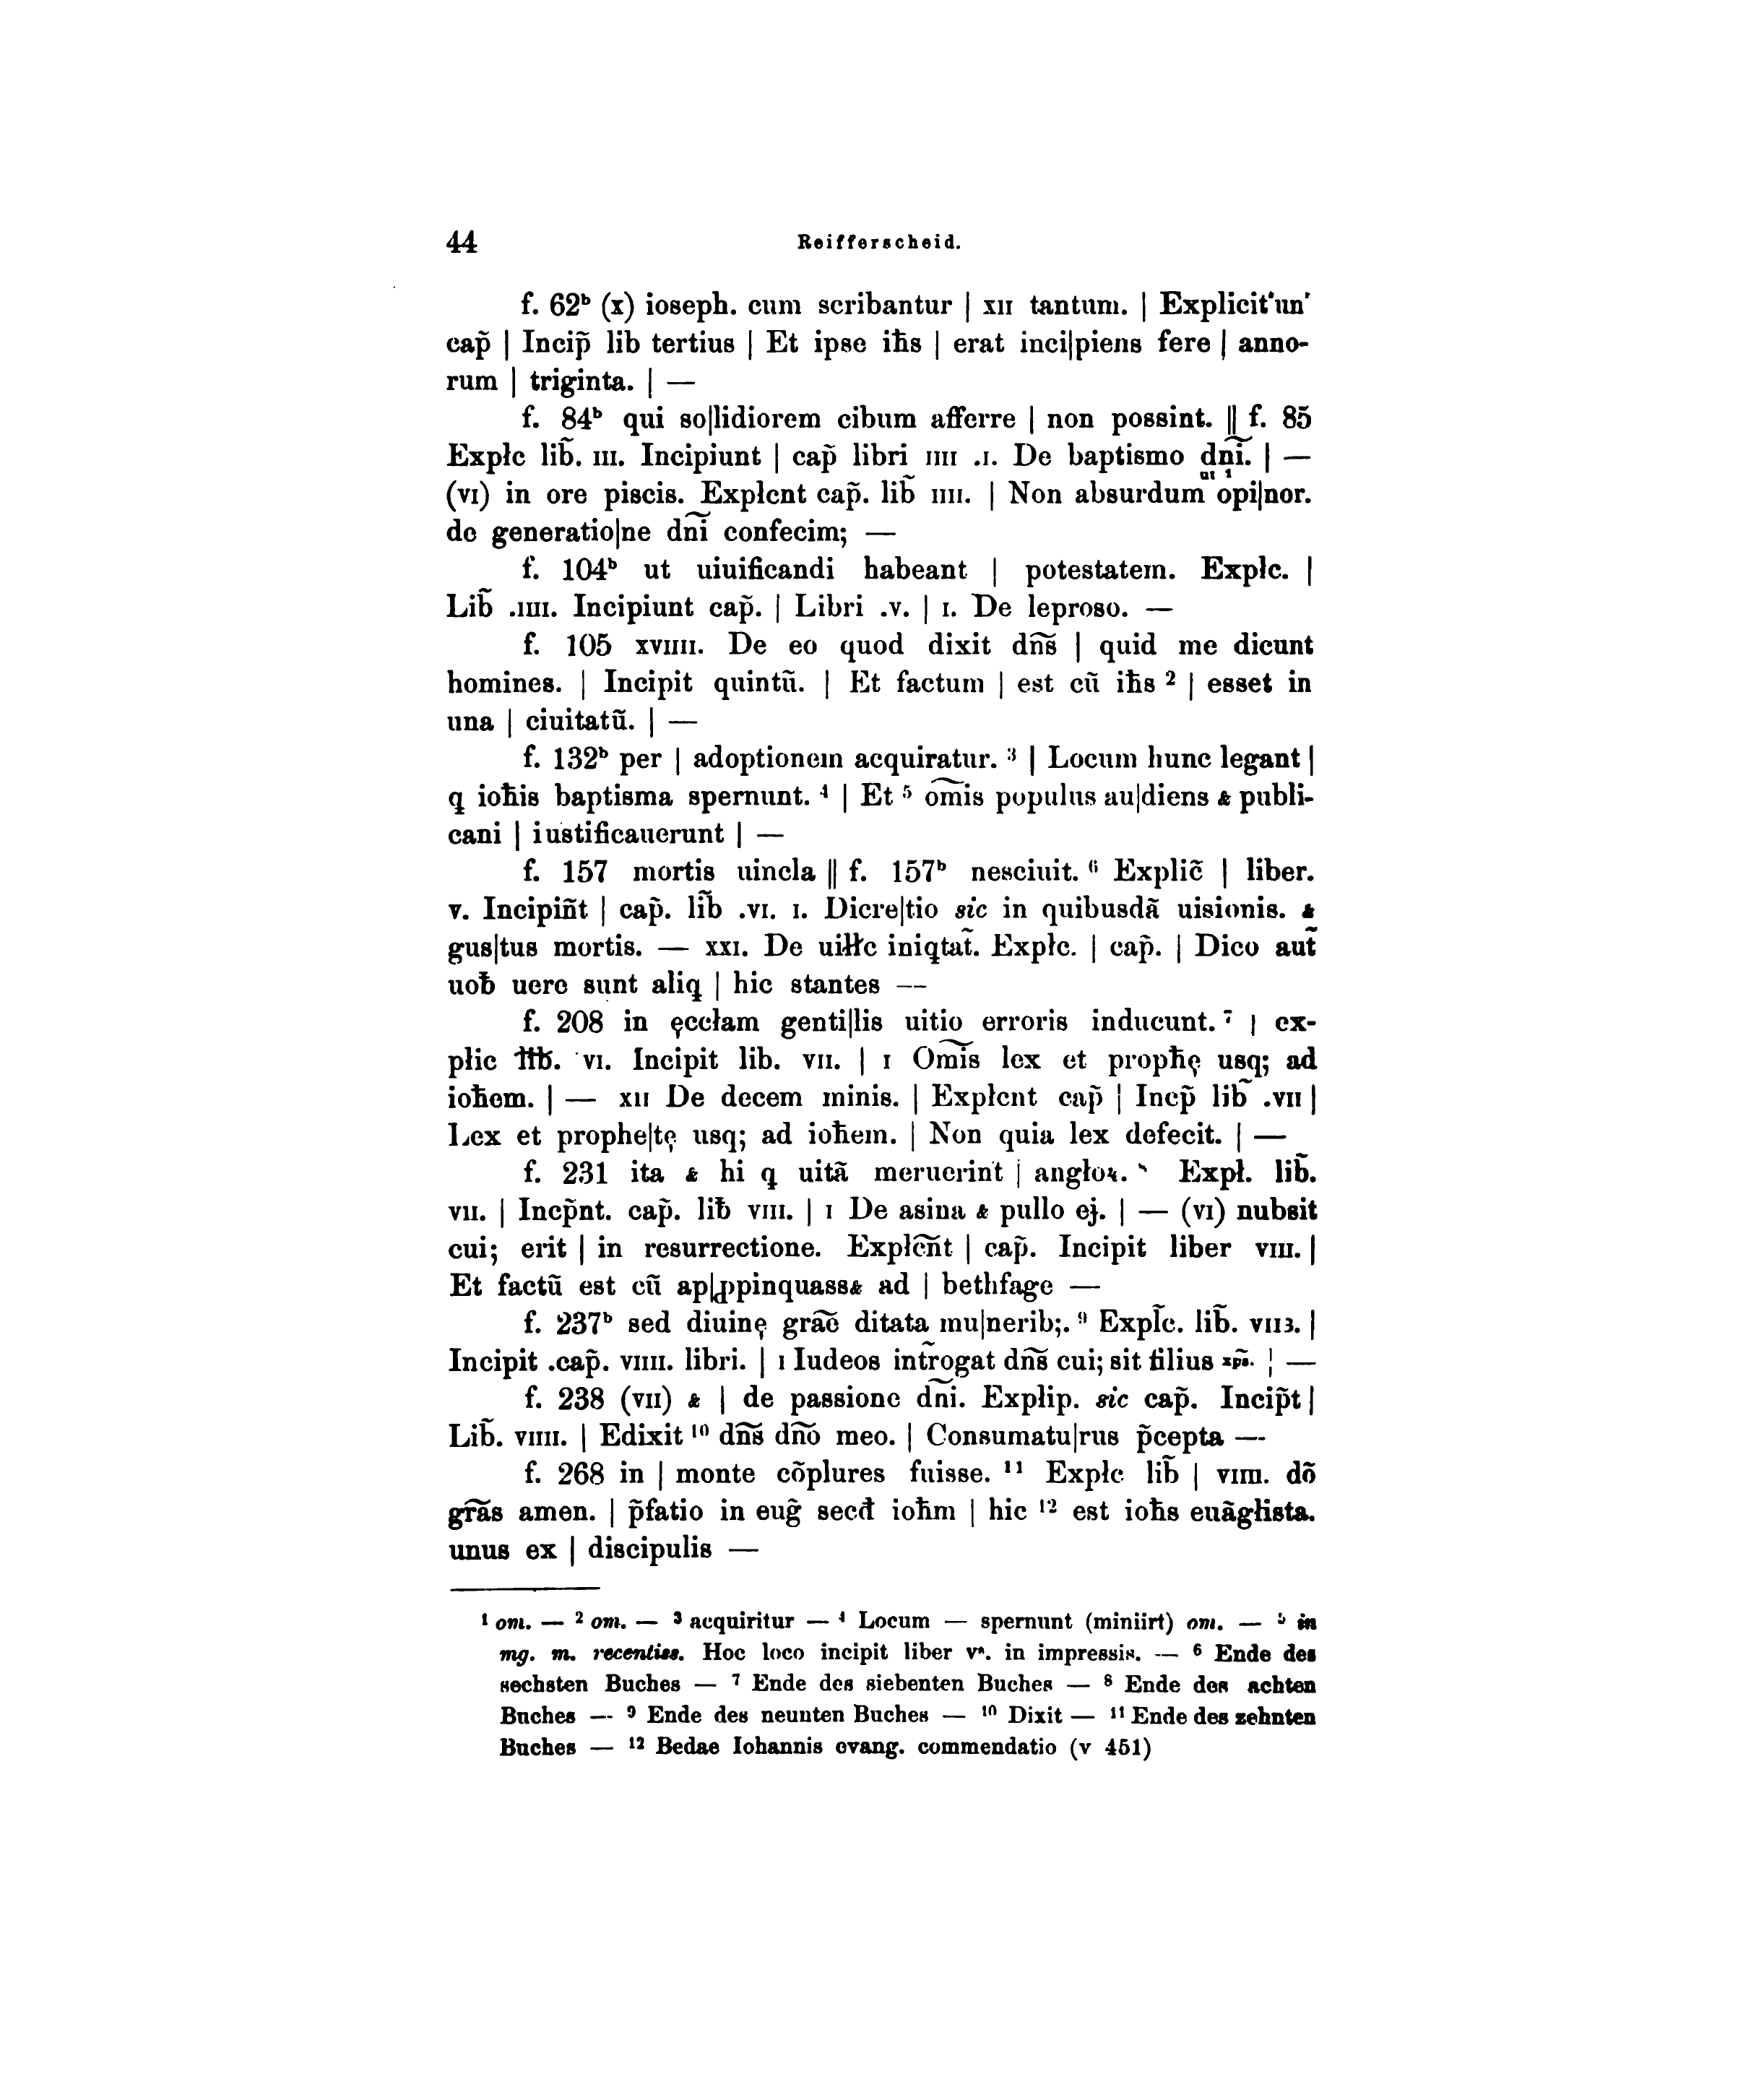 44 Reifferscheid.
f. 62ᵇ (x) ioseph. cum scribantur | xii tantum. | Explicit'un'
cap̃ | Incip̃ lib tertius | Et ipse ih̄s | erat inci|piens fere | anno-
rum | triginta. | —
f. 84ᵇ qui so|lidiorem cibum afferre | non possint. || f. 85
Expłc lib̃. iii. Incipiunt | cap̃ libri iiii .i. De baptismo dn͠i. | —
(vi) in ore piscis. Explcnt cap̃. lib̃ iiii. | Non absurdum ut ¹ opi|nor.
de generatio|ne dn͠i confecim; —
f. 104ᵇ ut uiuificandi habeant | potestatem. Expłc. |
Lib̃ .iiii. Incipiunt cap̃. | Libri .v. | i. De leproso. —
f. 105 xviiii. De eo quod dixit dn͠s | quid me dicunt
homines. | Incipit quintũ. | Et factum | est cũ ih̄s ² | esset in
una | ciuitatũ. | —
f. 132ᵇ per | adoptionem acquiratur. ³ | Locum hunc legant |
q ioh̄is baptisma spernunt. ⁴ | Et ⁵ om͠is populus au|diens & publi-
cani | iustificauerunt | —
f. 157 mortis uincla || f. 157ᵇ nesciuit. ⁶ Explic̃ | liber.
v. Incipiñt | cap̃. lib̃ .vi. i. Dicre|tio sic in quibusdã uisionis. &
gus|tus mortis. — xxi. De uiłłc iniqtat̃. Expłc. | cap̃. | Dico aut̃
uoƀ uere sunt aliq | hic stantes —
f. 208 in ęccłam genti|lis uitio erroris inducunt. ⁷ | ex-
płic łib. vi. Incipit lib. vii. | i Om͠is lex et proph̄ę usq; ad
ioh̄em. | — xii De decem minis. | Explcnt cap̃ | Incp̃ lib̃ .vii |
Lex et prophe|tę usq; ad ioh̄em. | Non quia lex defecit. | —
f. 231 ita & hi q uitã meruerint | angłoꝝ. ⁸ Expł. lib̃.
vii. | Incp̃nt. cap̃. liƀ viii. | i De asina & pullo ej. | — (vi) nubsit
cui; erit | in resurrectione. Expłc͠ñt | cap̃. Incipit liber viii. |
Et factũ est cũ ap|ꝓpinquass& ad | bethfage —
f. 237ᵇ sed diuinę grãõ ditata mu|nerib;. ⁹ Expl̃c. lib̃. viiз. |
Incipit .cap̃. viiii. libri. | i Iudeos int̃rogat dn͠s cui; sit filius xp̃s. | —
f. 238 (vii) & | de passione dn͠i. Explip. sic cap̃. Incip̃t |
Lib̃. viiii. | Edixit ¹⁰ dn͠s dn͠o meo. | Consumatu|rus p̃cepta —
f. 268 in | monte cõplures fuisse. ¹¹ Expłc lib̃ | viiii. dõ
gr͠as amen. | p̃fatio in eug̃ secđ ioh̄m | hic ¹² est ioh̄s euãgłista.
unus ex | discipulis —
¹ om. — ² om. — ³ acquiritur — ⁴ Locum — spernunt (miniirt) om. — ⁵ in
mg. m. recentiss. Hoc loco incipit liber vˢ. in impressis. — ⁶ Ende des
sechsten Buches — ⁷ Ende des siebenten Buches — ⁸ Ende des achten
Buches — ⁹ Ende des neunten Buches — ¹⁰ Dixit — ¹¹ Ende des zehnten
Buches — ¹² Bedae Iohannis evang. commendatio (v 451)